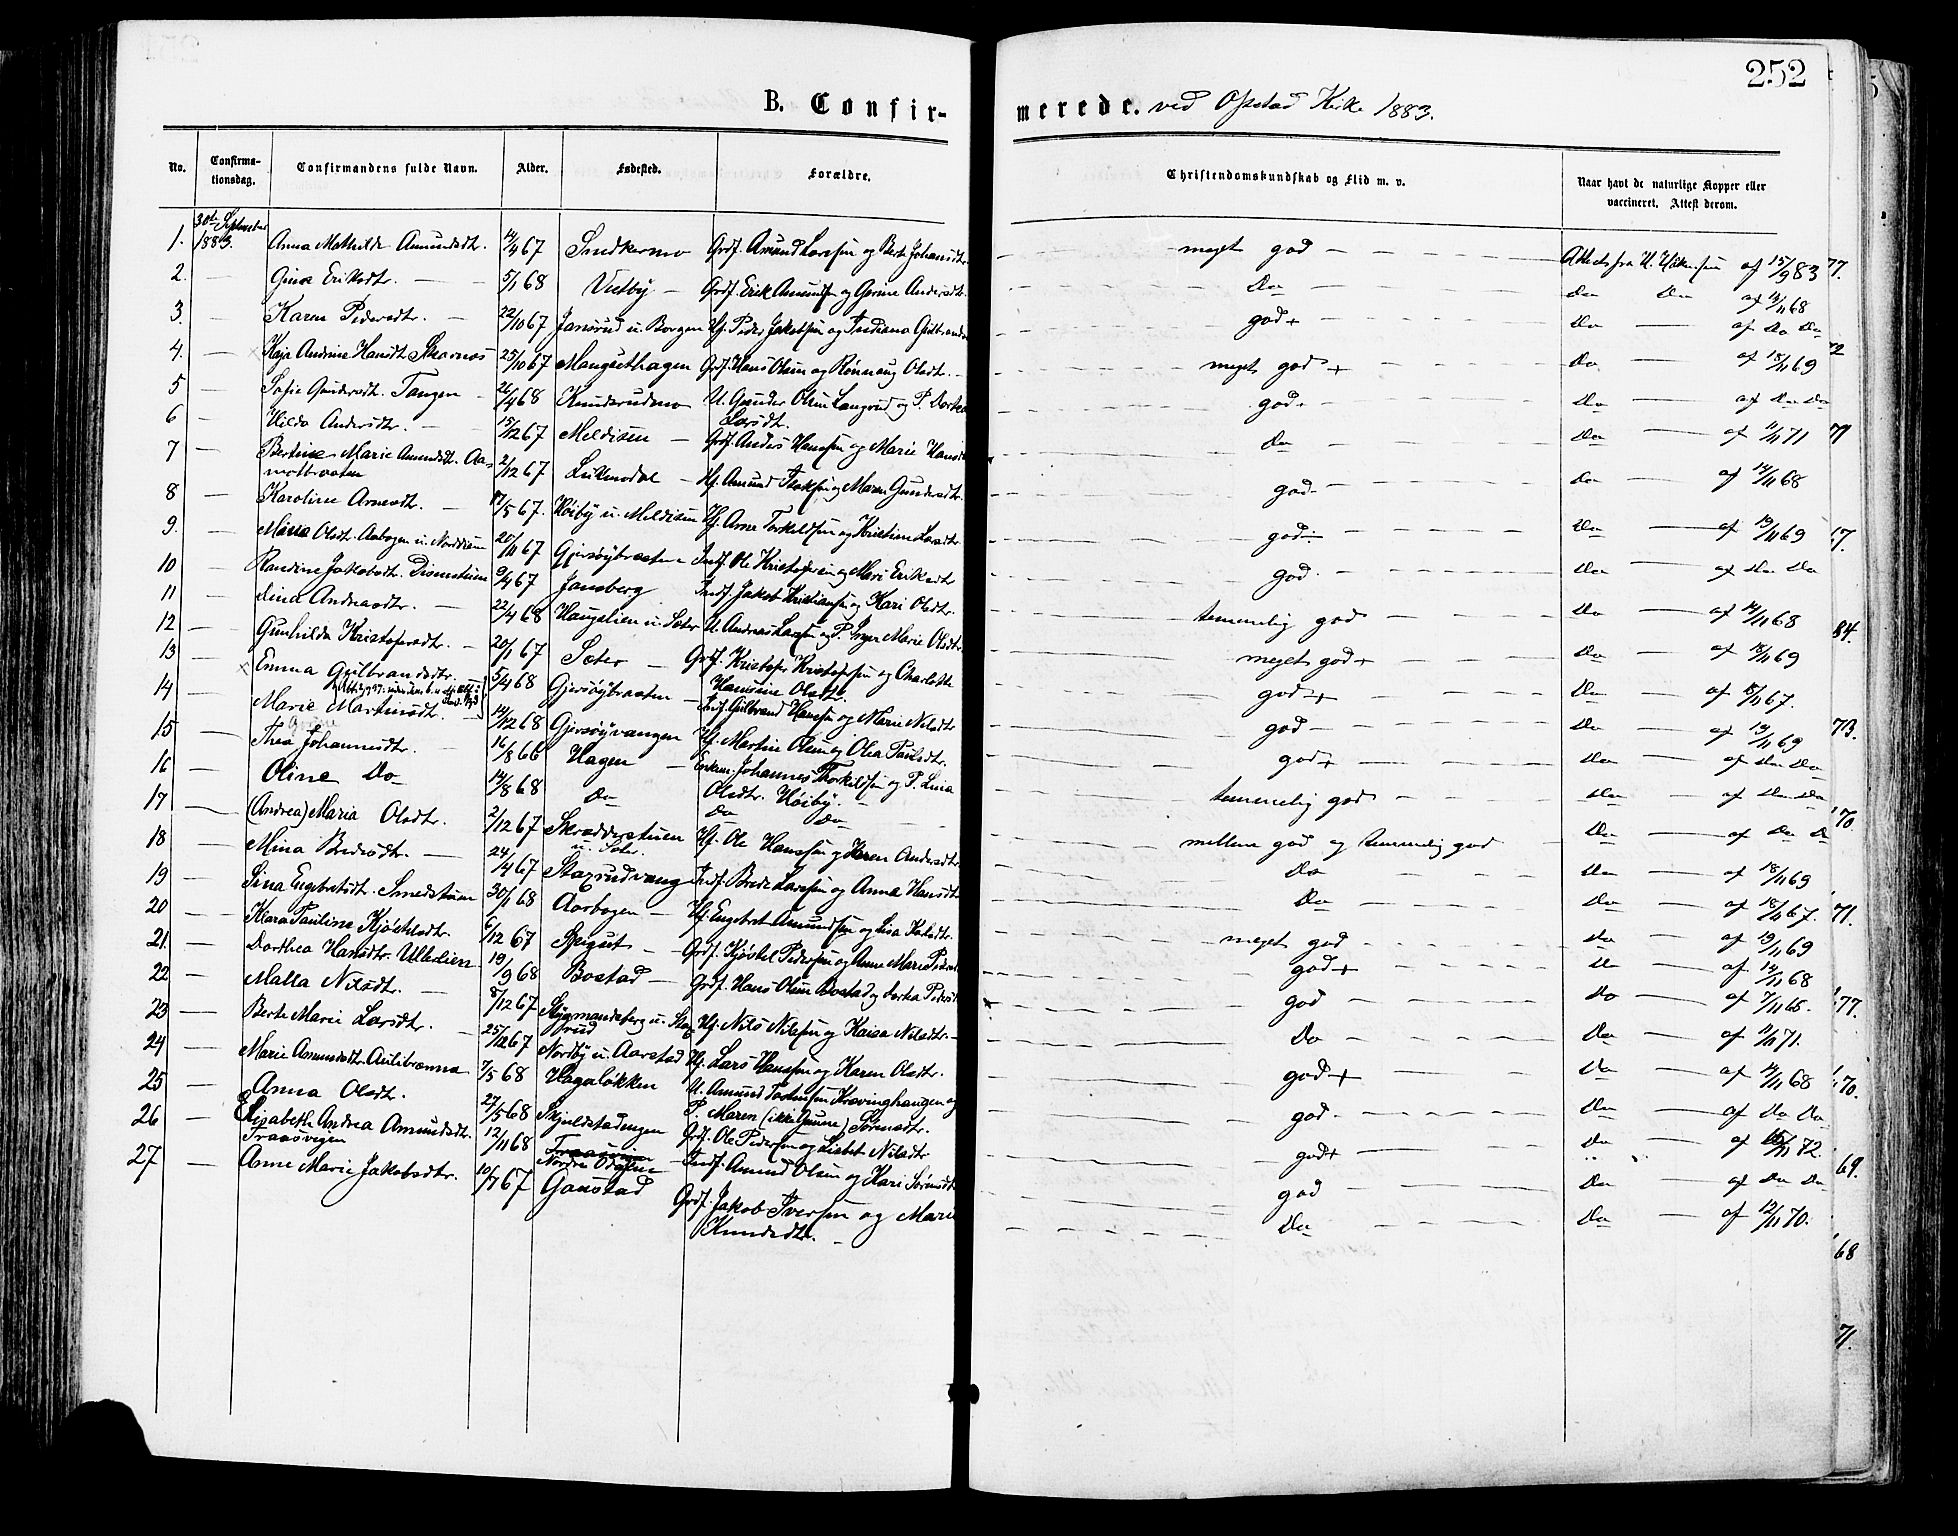 252
B. Confirmerede. ved Opstad Kirke 1883.
No. Confirmationsdag. Confirmandens fulde Navn. Alder. Fødested. Forældre. Christendomskundskab og Flid m. v. Naar havt de naturlige Kopper eller vaccineret. Attest derom.
1. 30te September 1883. Anna Mathilde Amundsdtr. 14/4 67 Snekkermo Grdf. Amund Larssen og Berte Johansdtr. meget god Attest fra af 15/9 83
2. Gina Eriksdtr. 5/1 68 Vestby Grdf. Erik Amundsen og Gorine Andersdtr. Do Do Do af 14/11 68
3. Karen Pedersdtr. 22/10 67 Jansrud u. Borgen Hf. Peder Jakobsen og Indiana Gulbrandsdtr god + Do af Do Do
4. Kaja Andrine Hansdt. Skarnæs 25/10 67 Mangsethagen Grdf. Hans Olsen og Rønnaug Olsdt. meget god + Do af 18/11 69
5 Sofie Gundersdt. Tangen 26/4 68 Knudsrudmo U. Gunder Olsen Langrud og P. Dorthe Larsdt. god Do af Do Do
6 Hilda Andersdtr. 15/12 67 Meldisen Grdf. Anders Hanssen og Marie Hansdt Do Do af 11/11 71
7 Bertine Marie Amundsdt. Aamottraaten 2/12 67 Hf. Amund Isaksen og Maren Gundersdtr. god Do af 14/11 68
8 Karoline Arnesdt. 17/5 67. Høiby u. Meldisen Hf. Arne Torkildsen og Kristine Larsdtr. god Do af 19/11 69
9. Mina Olsdt. Aabogen u. Norddisen 20/11 67 Gjersøybraaten Indf. Ole Kristofersen og Mari Eriksdtr god Do af Do Do
10 Randine Jakobsdt. Disenstuen 9/4 67 Jansberg Indf. Jakob Kristiansen og Kari Olsdtr. temmelig god Do af 14/11 68
11 Lina Andreasdtr. 22/4 68 Haugelien u. Sæter U. Andreas Larssen og P. Inger Marie Olsdtr. meget god + Do af 18/11 69
12 Gunhilda Kristofersdt. 20/1 67 Sæter Grdf. Kristofer Kristofersen og Charlotte Hansine Olsdtr. god + Do af 18/11 67.
13 Emma Gulbrandsdtr. 5/4 68 Gjersøybraaten Indf. Gulbrand Hanssen og Marie Nilsdtr god Do af 19/11 69
14 Marie Martinsdt. 14/12 68 Gjersøyvangen Hf. Martin Olsen og Olea Paulsdtr. god + Do af Do Do
15 Thea Johannesdtr. 16/8 66 Hagen Enkem. Johannes Torkildsen og P. Lina Olsdtr. Høiby. temmelig god Do af Do Do
16 Oline Do 14/8 68 Do Do Do mellem god og temmelig god Do af Do Do
17 (Andrea) Maria Olsdtr. 2/12 67 Skrædderstuen u. Sæter. Hf. Ole Hanssen og Karen Andersdtr. Do Do af 18/11 69
18 Mina Bredesdtr. 24/4 67 Staxrudvang Indf. Brede Larssen og Anna Hansdt. Do Do af 18/11 67.
19 Lina Engebretsdt. Smedstuen 30/1 68 Aabogen Hf. Engebret Amundsen og Lisa meget god Do af 19/11 69
20 Klara Pauline Kjøstelsdtr. 6/12 67 Speigut Grdf. Kjøstel Pedersen og Anne Marie god + Do af 14/11 68
21. Dorthea Hansdtr. Ullelien 19/9 68 Bostad Grdf. Hans Olsen Bostad og Dorthea Pedersdt god Do af 7/11 65.
22 Malla Nilsdtr. 8/12 67 Sygmandsberg u. Staxrud Hf. Nils Nilssen og Kaisa Nilsdtr. Do Do af 11/11 71.
23 Berte Marie Larsdt. 25/12 67 Nordby u. Aarstad Hf. Lars Hanssen og Karen Olsdtr. god + Do af 14/11 68
24 Marie Amundsdt. Aulibrænna 7/5 68 Hageløkken U. Amund Torstensen Kravinghaugen og P. Maren (ikke Gunne) Sørensdtr. god Do af Do Do
25 Anna Olsdt. 27/5 68 Skjulstadengen Grdf. Ole Pedersen og Lisbet Nilsdtr god + Do af 15/11 72.
26 Elisabeth Andrea Amundsdt. Traasvigen 12/11 68 Nordre Odalen Indf. Amund Olsen og Kari Sørensdt god Do af Do Do
27 Anne Marie Jakobsdtr. 10/7 67 Gaustad Grdf. Jakob Iversen og Marie Knudsdtr. Do Do af 12/11 70.
77.
72
71
67.
84.
73.
70.
71.
77.
70.
69.
68
71.